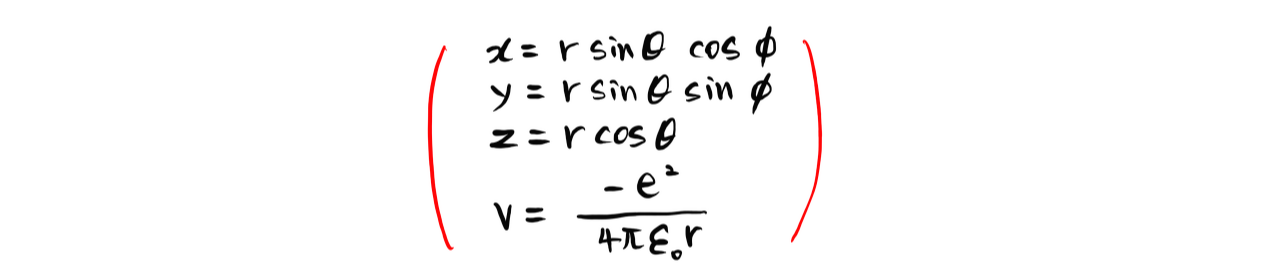 x = r sinθ cos ϕ
y = r sinθ sin ϕ
z = r cosθ
V = -e² / 4πε₀r